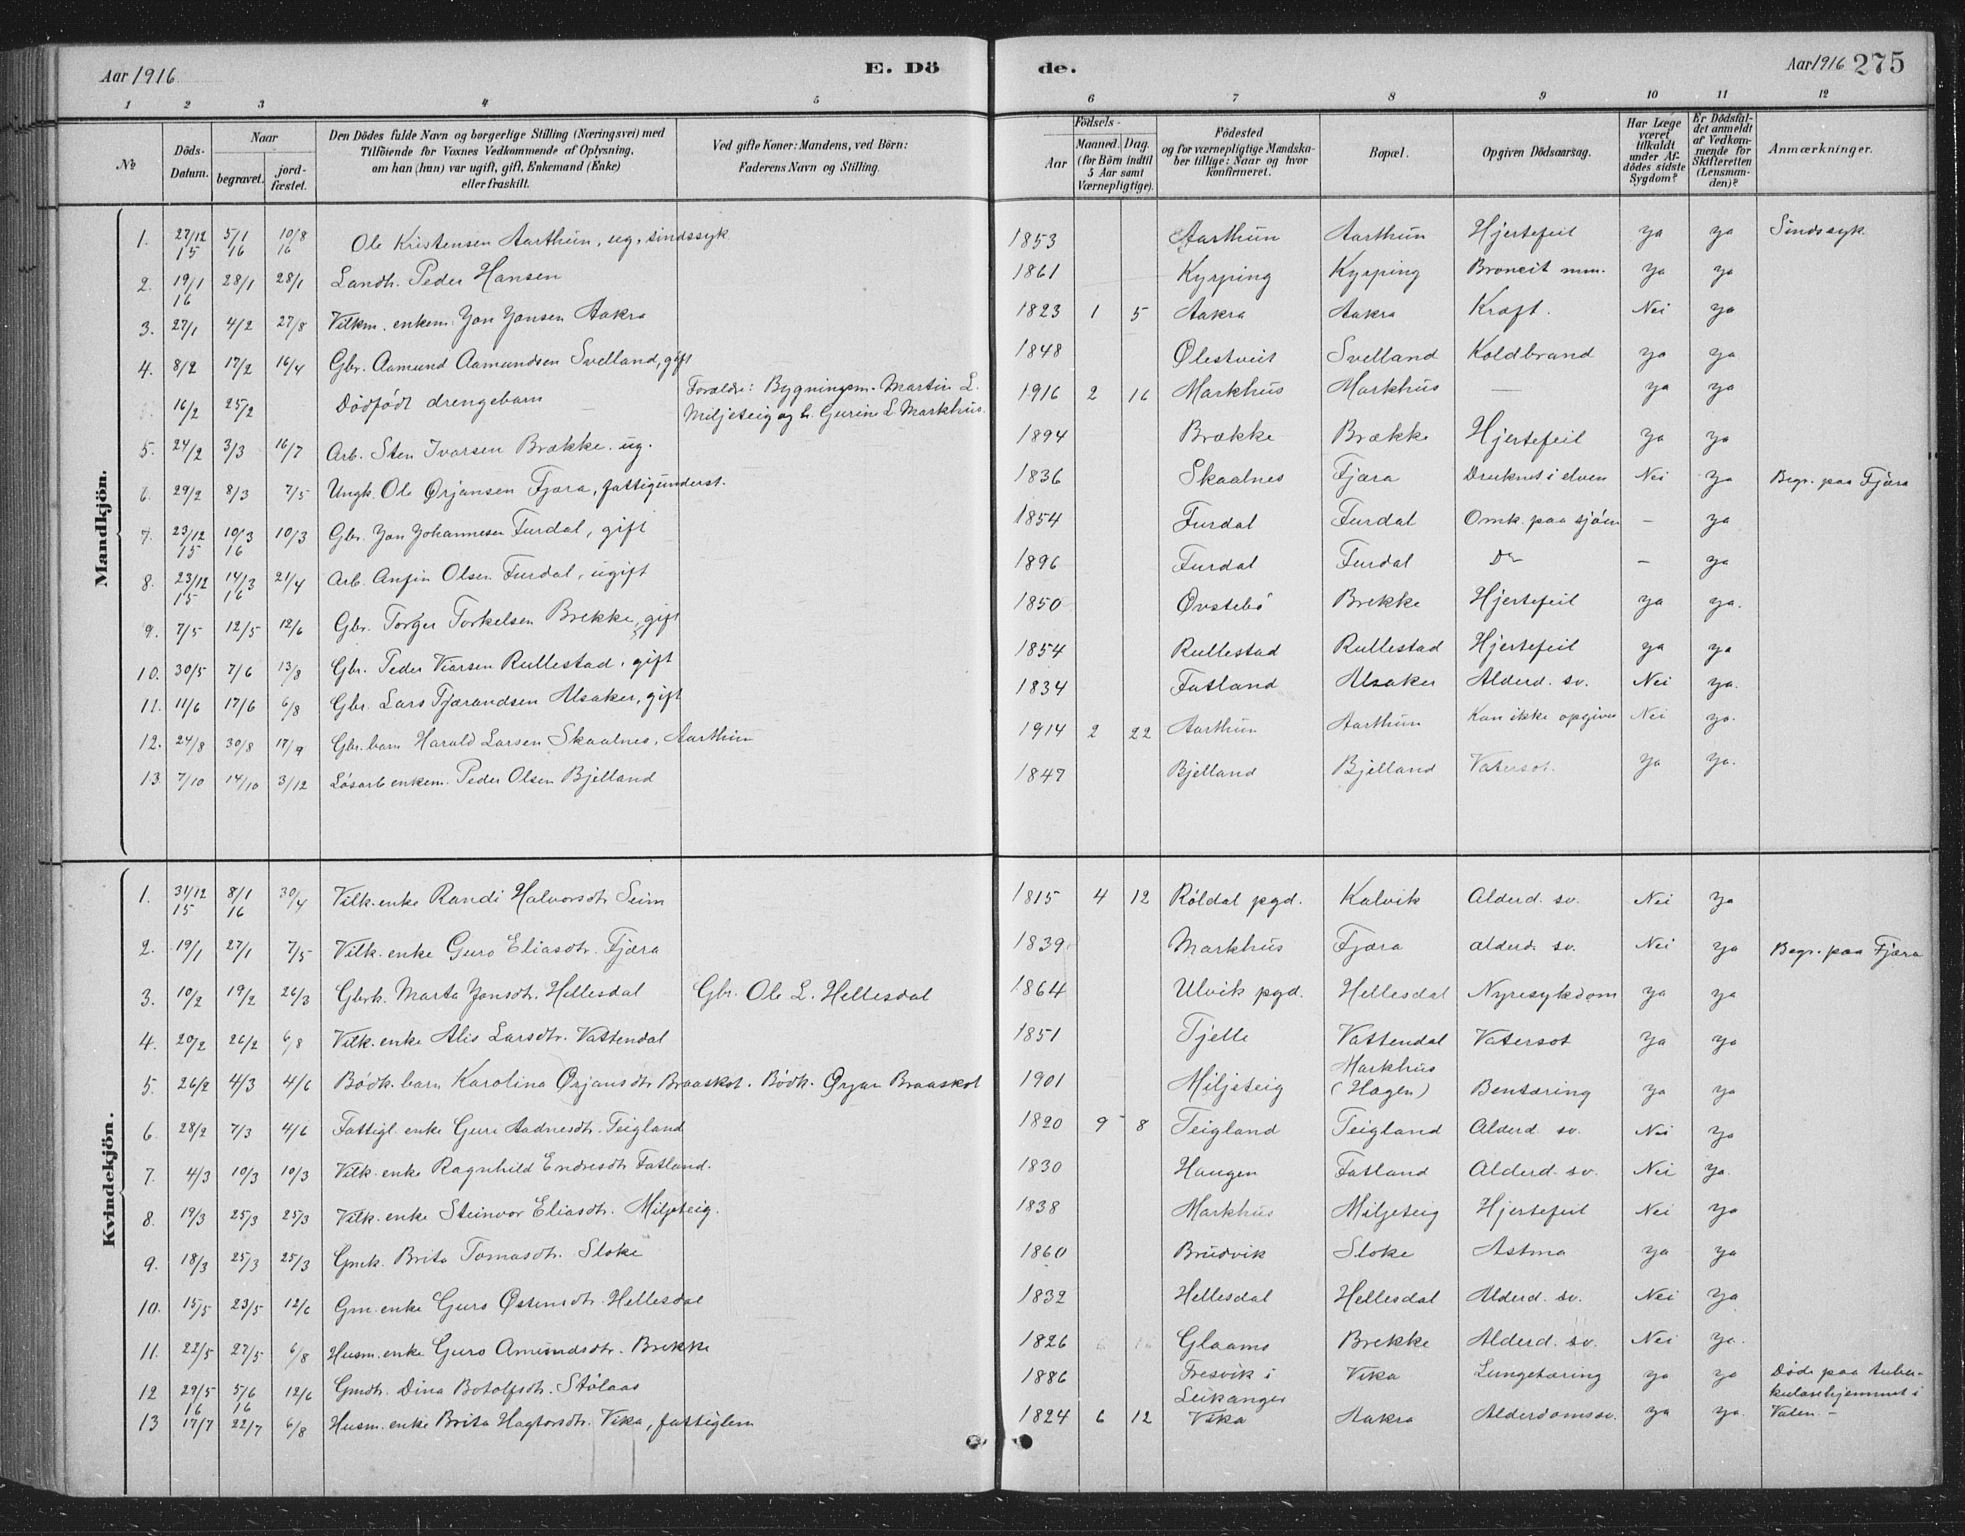 Aar 1916 E. Dö de. Aar 1916 275
1 2 3 4 5 6 7 8 9 10 11 12
No
Döds-Datum.
Naar
begravet.
jordfæstet.
Den Dödes fulde Navn og borgerlige Stilling (Næringsvei) med
Tilföiende for Voxnes Vedkommende af Oplysning,
om han (hun) var ugift, gift, Enkemand (Enke)
eller fraskilt.
Ved gifte Koner: Mandens, ved Börn:
Faderens Navn og Stilling.
Födsels-
Aar
Maaned. Dag.
(for Börn indtil
5 Aar samt
Værnepligtige).
Födested
og for værnepligtige Mandska-
ber tillige: Naar og hvor
konfirmeret.
Bopæl.
Opgiven Dödsaarsag.
Har Læge
været
tilkaldt
under Af-
dödes sidste
Sygdom?
Er Dödsfal-
det anmeldt
af Vedkom-
mende for
Skifteretten
(Lensman-
den)?
Anmærkninger.
Mandkjön.
1. 27/12 15 5/1 16 10/8 16 Ole Kristensen Aarthun, ug, sindssyk 1853 Aarthun Aarthun Hjertefeil ya ya Sindssyk
2. 19/1 16 28/1 28/1 Landh. Peder Hansen 1861 Kyrping Kyrping Broncit mm. ya ya
3. 27/1 4/2 27/8 Vilkm. enkem. Jon Jonsen Aakra 1823 1 5 Aakra Aakra Kræft. Nei ya
4. 8/2 17/2 16/4 Gbr. Aamund Aamundsen Svelland, gift 1848 Ølestveit Svelland Koldbrand ya ya
16/2 25/2 Dödfödt drengebarn — Forældre: Bygningsm. Martin L. Miljeteig og h. Gurine L. Markhus. 1916 2 16 Markhus Markhus — ya ya
5. 24/2 3/3 16/7 Arb. Sten Ivarsen Brække. ug. 1894 Brække Brække Hjertefeil ya ya
6. 29/2 8/3 7/5 Ungk. Ole Ørjansen Fjæra, fattigunderst. 1836 Skaalnes Fjæra Druknet i elven Nei ya Begr. paa Fjæra
7. 23/12 15 10/3 16 10/3 Gbr. Jon Johannesen Furdal, gift 1854 Furdal Furdal Omk. paa sjøen — ya
8. 23/12 15 14/3 16 21/4 Arb. Anfin Olsen Furdal, ugift 1896 Furdal Furdal Do — ya
9. 7/5 12/5 12/6 Gbr. Torger Torkelsen Brekke, gift 1850 Øvstebö Brekke Hjertefeil ya ya.
10. 30/5 7/6 13/8 Gbr. Peder Ivarsen Rullestad, gift 1854 Rullestad Rullestad Hjertefeil ya ya
11. 11/6 17/6 6/8 Gbr. Lars Tjærandsen Alsaker, gift 1834 Fatland Alsaker Alderd. sv. Nei ya.
12. 24/8 30/8 17/9 Gbr. barn Harald Larsen Skaalnes, Aarthun 1914 2 22 Aarthun Aarthun Kan ikke opgives Nei ya.
13 7/10 14/10 3/12 Løsarb enkem. Peder Olsen Bjelland 1847 Bjelland Bjelland Vatersot. ya ya.
Kvindekjön.
1. 31/12 15 8/1 16 30/4 Vilk. enke Randi Halvorsdtr Seim 1815 4 12 Röldal pgd. Kalvik Alderd. sv. Nei ya
2. 19/1 27/1 7/5 Vilk. enke Guro Eliasdtr. Fjæra 1839 Markhus Fjæra alderd. sv. Nei ya Begr. paa Fjæra
3. 10/2 19/2 26/3 Gbrk. Marta Jonsdtr. Hellesdal Gbr. Ole L. Hellesdal 1864 Ulvik pgd. Hellesdal Nyresykdom ya ya
4. 20/2 26/2 6/8 Vilk. enke Alis Larsdtr. Vattendal 1851 Tjelle Vattendal Vatersot ya ya
5. 26/2 4/3 4/6 Bødk. barn Karolina Ørjansdtr Braaskot. Bødk. Ørjan Braaskot 1901 Miljeteig Markhus (Hagen) Bentæring ya ya
6. 28/2 7/3 4/6 Fattigl. enke Guri Aadnesdtr. Teigland 1820 9 8 Teigland Teigland Alderd. sv. Nei ya
7. 4/3 10/3 10/3 Vilk. enke Ragnhild Endresdtr Fatland. 1830 Haugen Fatland Alderd. sv. Nei ya.
8. 19/3 25/3 25/3 Vilk. enke Steinvor Eliasdtr. Miljeteig. 1838 Markhus Miljeteig Hjertefeil Nei ya
9. 18/3 25/3 25/3 Gmk. Brita Tomasdtr. Sloke 1860 Brudvik Sloke Astma ya ya
10. 15/5 23/5 12/6 Gm. enke Guro Østensdtr. Hellesdal 1832 Hellesdal Hellesdal Alderd. sv. Nei ya
11. 22/5 27/5 6/8 Husm. enke Guro Amundsdtr. Brekke 1826 Glaams Brekke Alderd. sv. Nei ya.
12 29/5 16 5/6 16 12/6 Gmdtr. Dina Botolfsdtr. Stølaas 1886 Fresvik i Leikanger Vika Lungetæring ya ya Døde paa tuberkulosehjemmet i Valen. —
13 17/7 22/7 6/8 Husm. enke Brita Hagtorsdtr. Vika, fattiglem 1824 6 12 Vika Aakra Alderdomssv. ya ya.